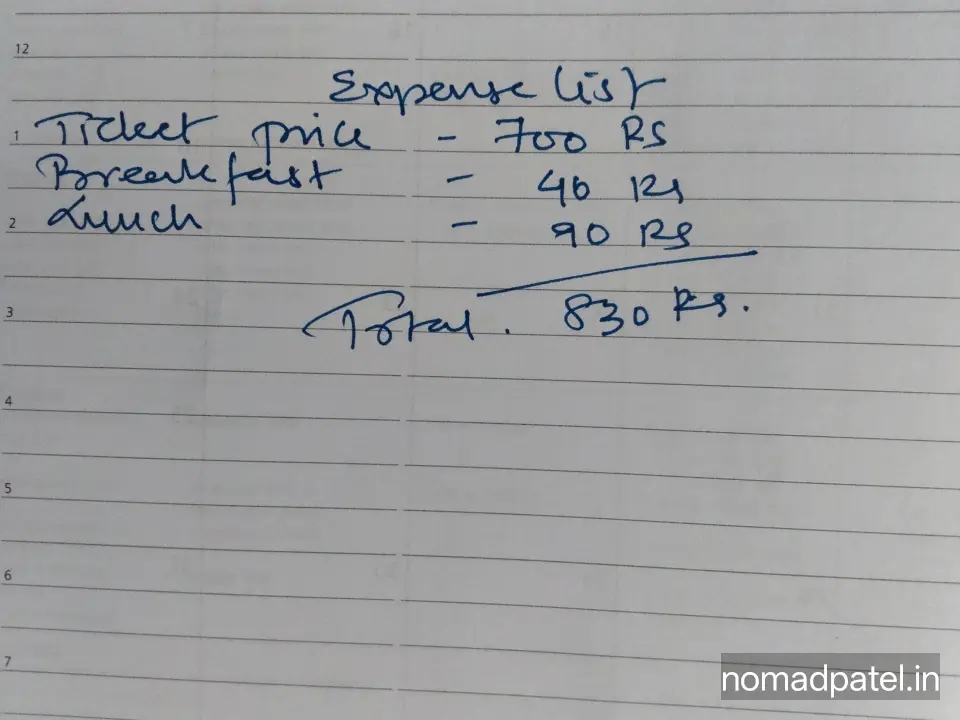 12
Expense list
1 Ticket price - 700 RS
Breakfast - 40 Rs
2 Lunch - 90 Rs
3 Total. 830 Rs.
4
5
6
7
nomadpatel.in